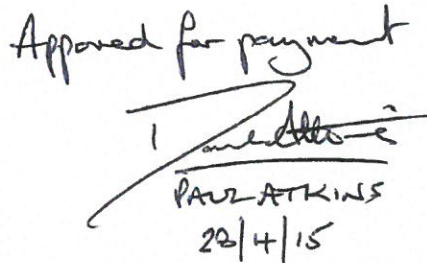 Appoved for payment
PAUL ATKINS
28/4/15